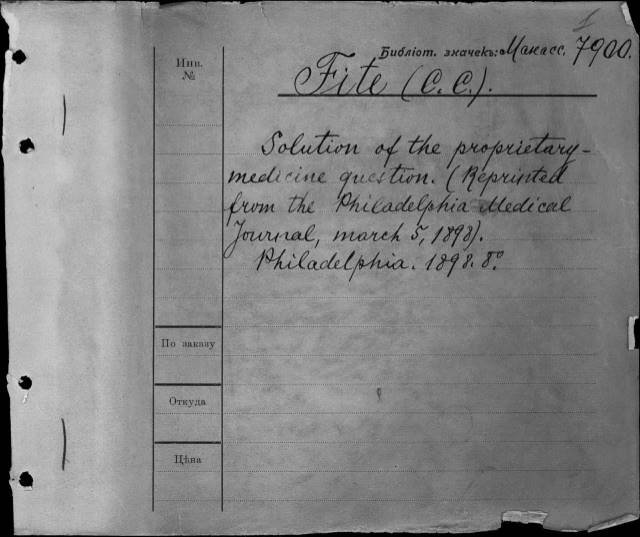 Инв.
№
Библіот. значекъ: Макасс. 7900.
Fite (C. C.).
Solution of the proprietary-
medicine question. (Reprinted
from the Philadelphia Medical
Journal, march 5, 1898).
Philadelphia. 1898. 8°.
По заказу
Откуда
Цѣна